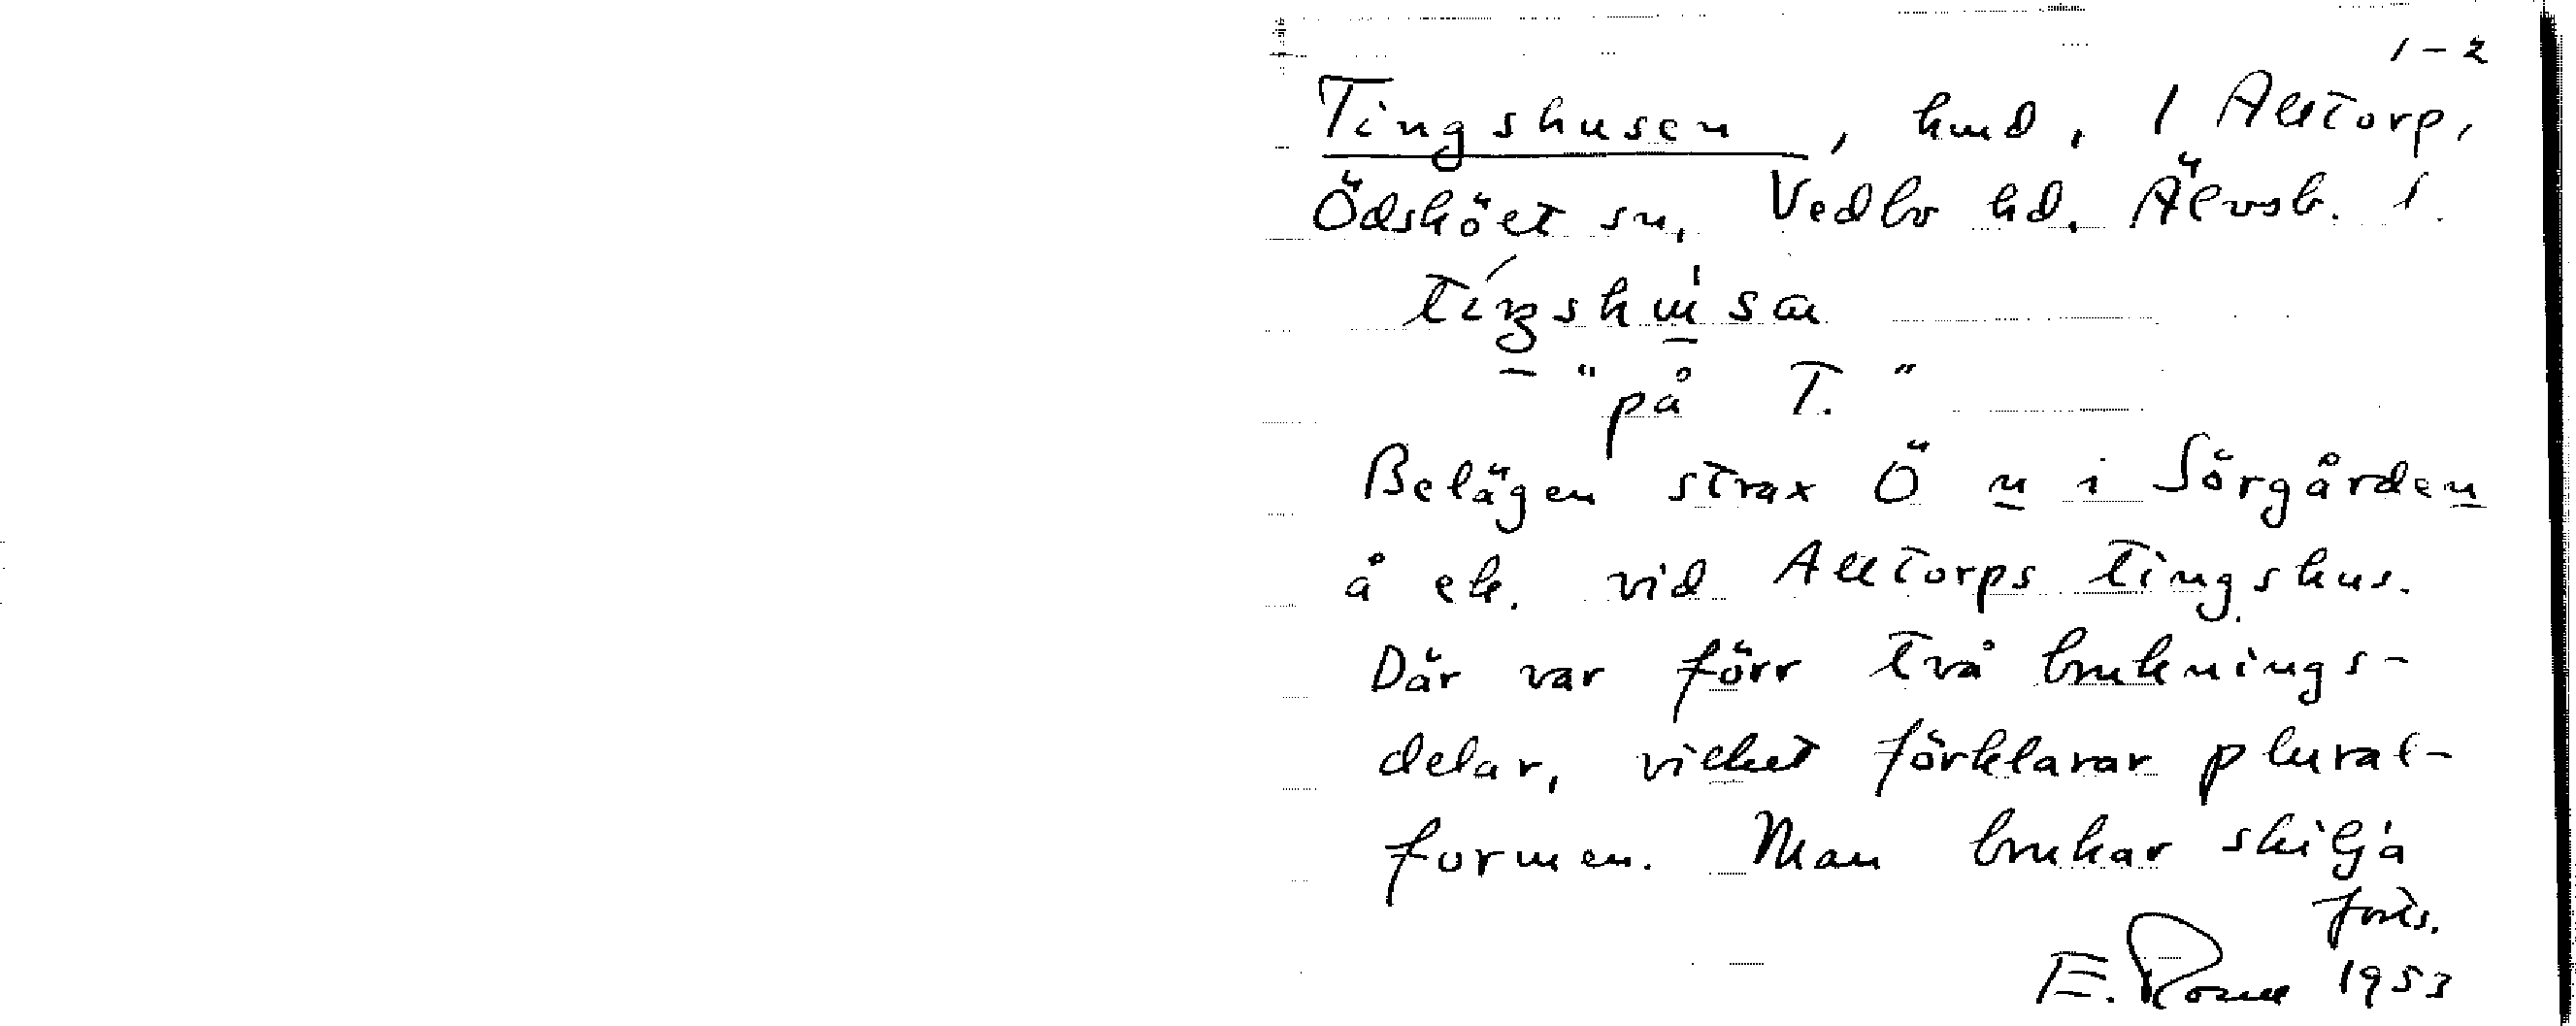 1-2
Tingshusen, hmd, 1 Alltorp,
Ödsköłt sn, Vedbo hd. Älvsb. l.
tíŋshu̱̍sa
"på T."
Belägen strax Ö n i Sörgården
å ek. vid Alltorps tingshus.
Där var förr två bruknings-
delar, vilket förklarar plural-
formen. Man brukar skilja
forts.
1953